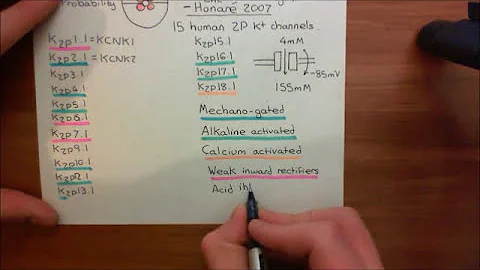 Probability
- Honoré 2007
15 human 2P K+ channels
K2P1.1 = KCNK1
K2P2.1 = KCNK2
K2P3.1
K2P4.1
K2P5.1
K2P6.1
K2P7.1
K2P9.1
K2P10.1
K2P12.1
K2P13.1
K2P15.1
K2P16.1
K2P17.1
K2P18.1
4mM
-85mV
155mM
Mechano-gated
Alkaline activated
Calcium activated
Weak inward rectifiers
Acid ihl